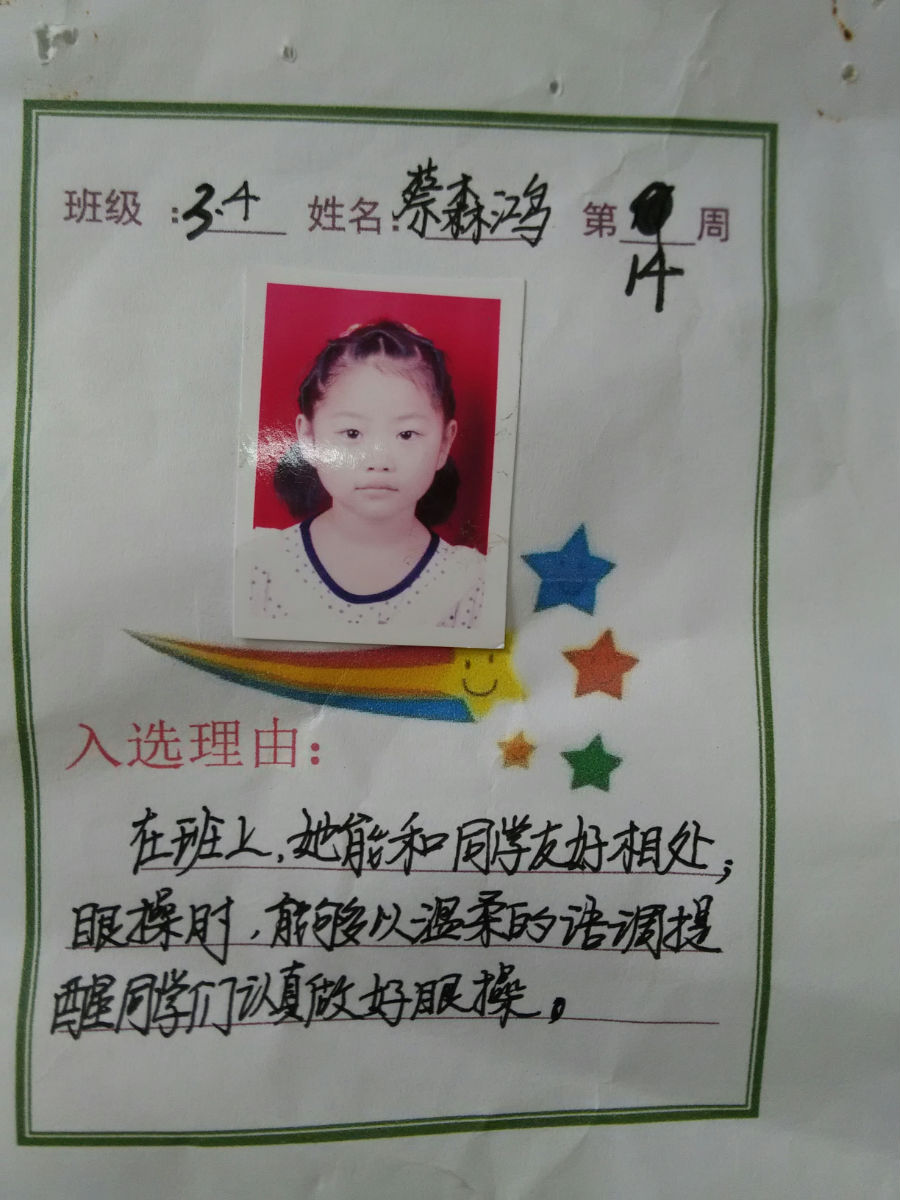 班级：3.4 姓名：蔡森鸿 第14周
入选理由：
在班上,她能和同学友好相处;
眼操时,能够以温柔的语调提
醒同学们认真做好眼操。